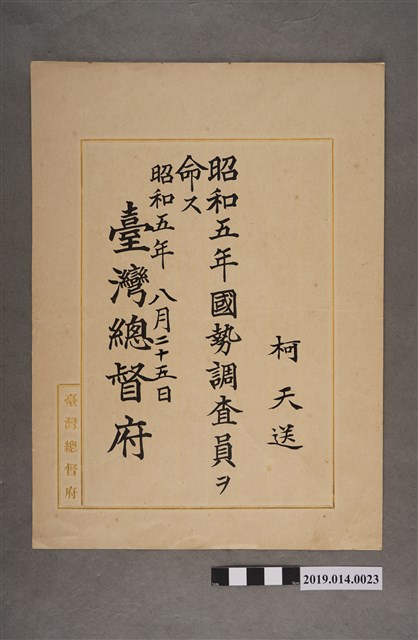 柯天送
昭和五年國勢調查員ヲ
命ス
昭和五年八月二十五日
臺灣總督府
臺灣總督府
2019.014.0023